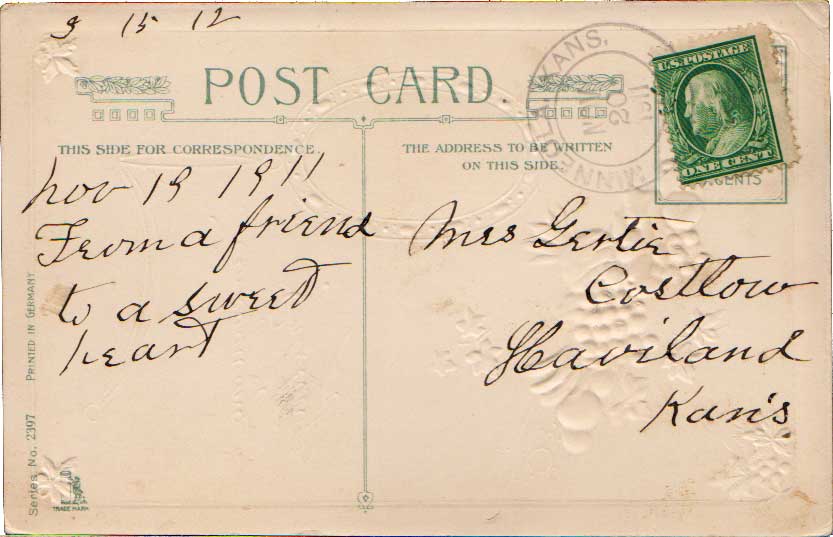 9 15 12
POST CARD
THIS SIDE FOR CORRESPONDENCE.
THE ADDRESS TO BE WRITTEN
ON THIS SIDE.
MINNEOLA, KANS.
20
1911
U.S. POSTAGE
ONE CENT
CENTS
Nov 19 1911
From a friend
to a sweet
heart
Mrs Gertie
Costlow
Haviland
Kan's.
PRINTED IN GERMANY
Series No. 2397
TRADE MARK